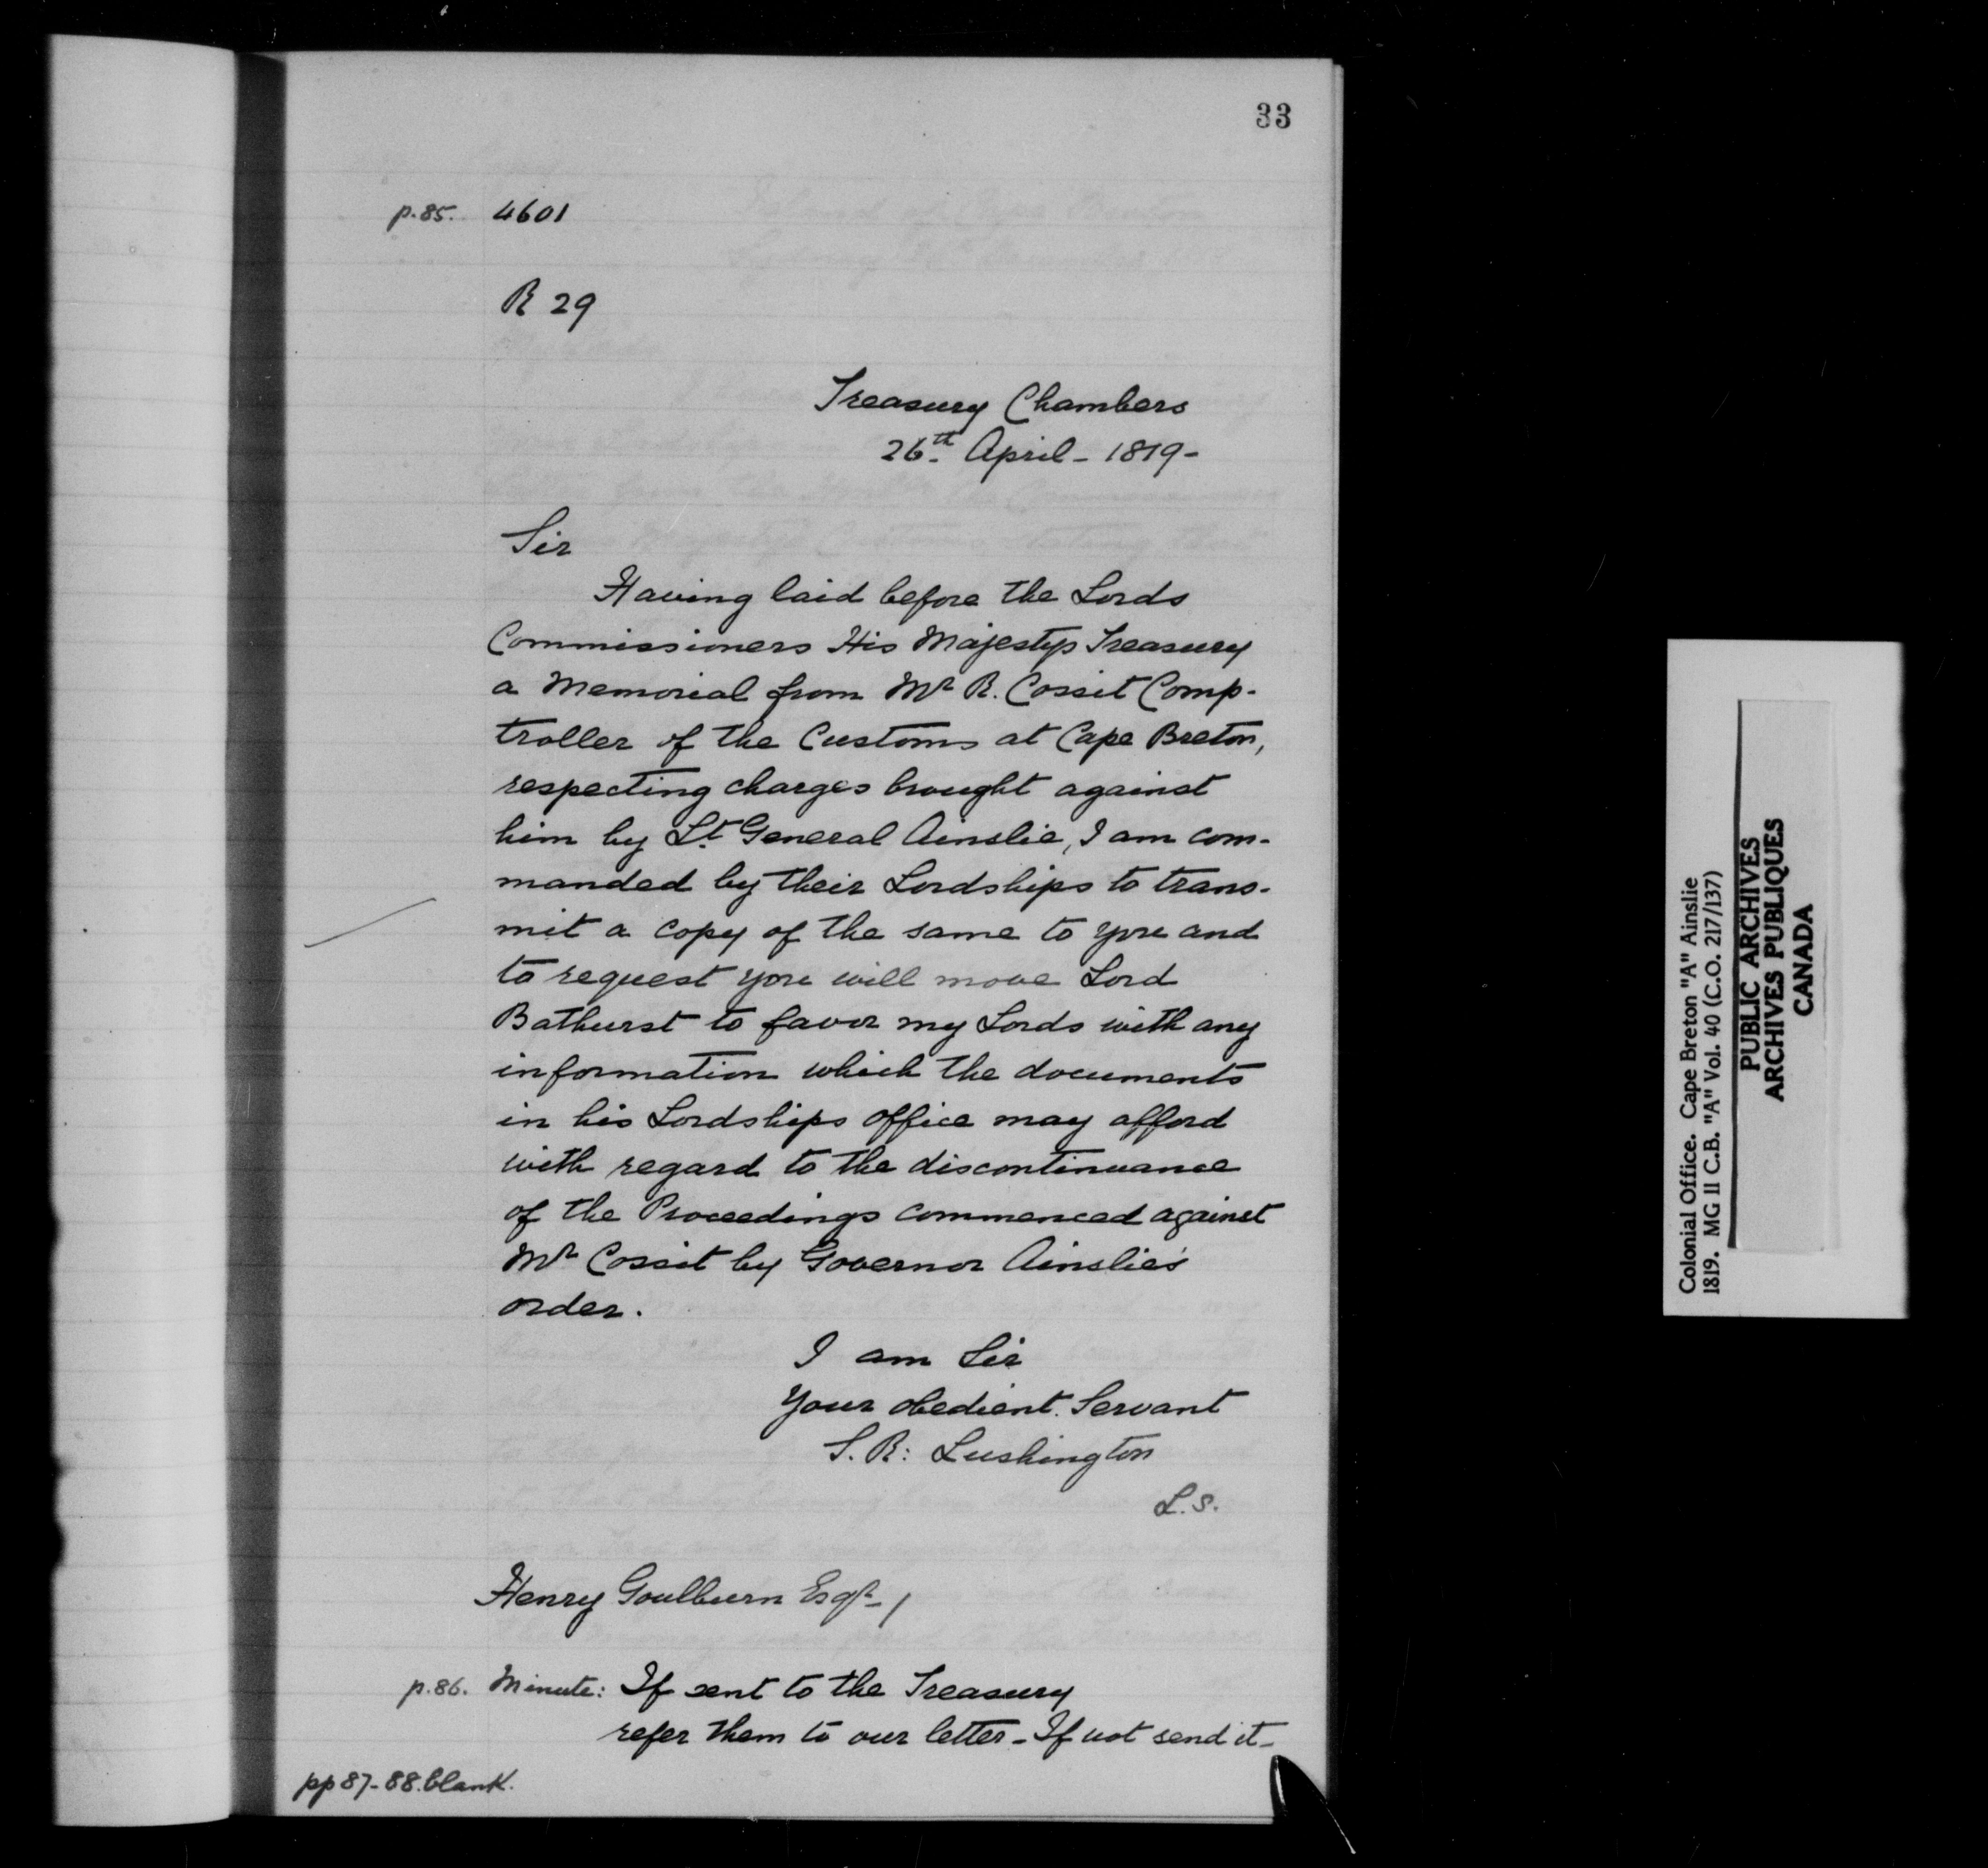 33
p.85. 4601
R 29
Treasury Chambers
26th April - 1819 -
Sir
Having laid before the Lords
Commissioners His Majestys Treasury
a Memorial from Mr R. Cossit Comp-
troller of the Customs at Cape Breton,
respecting charges brought against
him by Lt. General Ainslie, I am com-
manded by their Lordships to trans-
mit a copy of the same to you and
to request you will move Lord
Bathurst to favor my Lords with any
information which the documents
in his Lordships office may afford
with regard to the discontinuance
of the Proceedings commenced against
Mr Cossit by Governor Ainslie's
order.
I am Sir
Your obedient. Servant
S. R: Lushington
L.S.
Henry Goulburn Esqr - /
p.86. Minute: If sent to the Treasury
refer them to our letter - If not send it -
pp 87-88. blank.
Colonial Office. Cape Breton "A" Ainslie
1819. MG 11 C.B. "A" Vol. 40 (C.O. 217/137)
PUBLIC ARCHIVES
ARCHIVES PUBLIQUES
CANADA